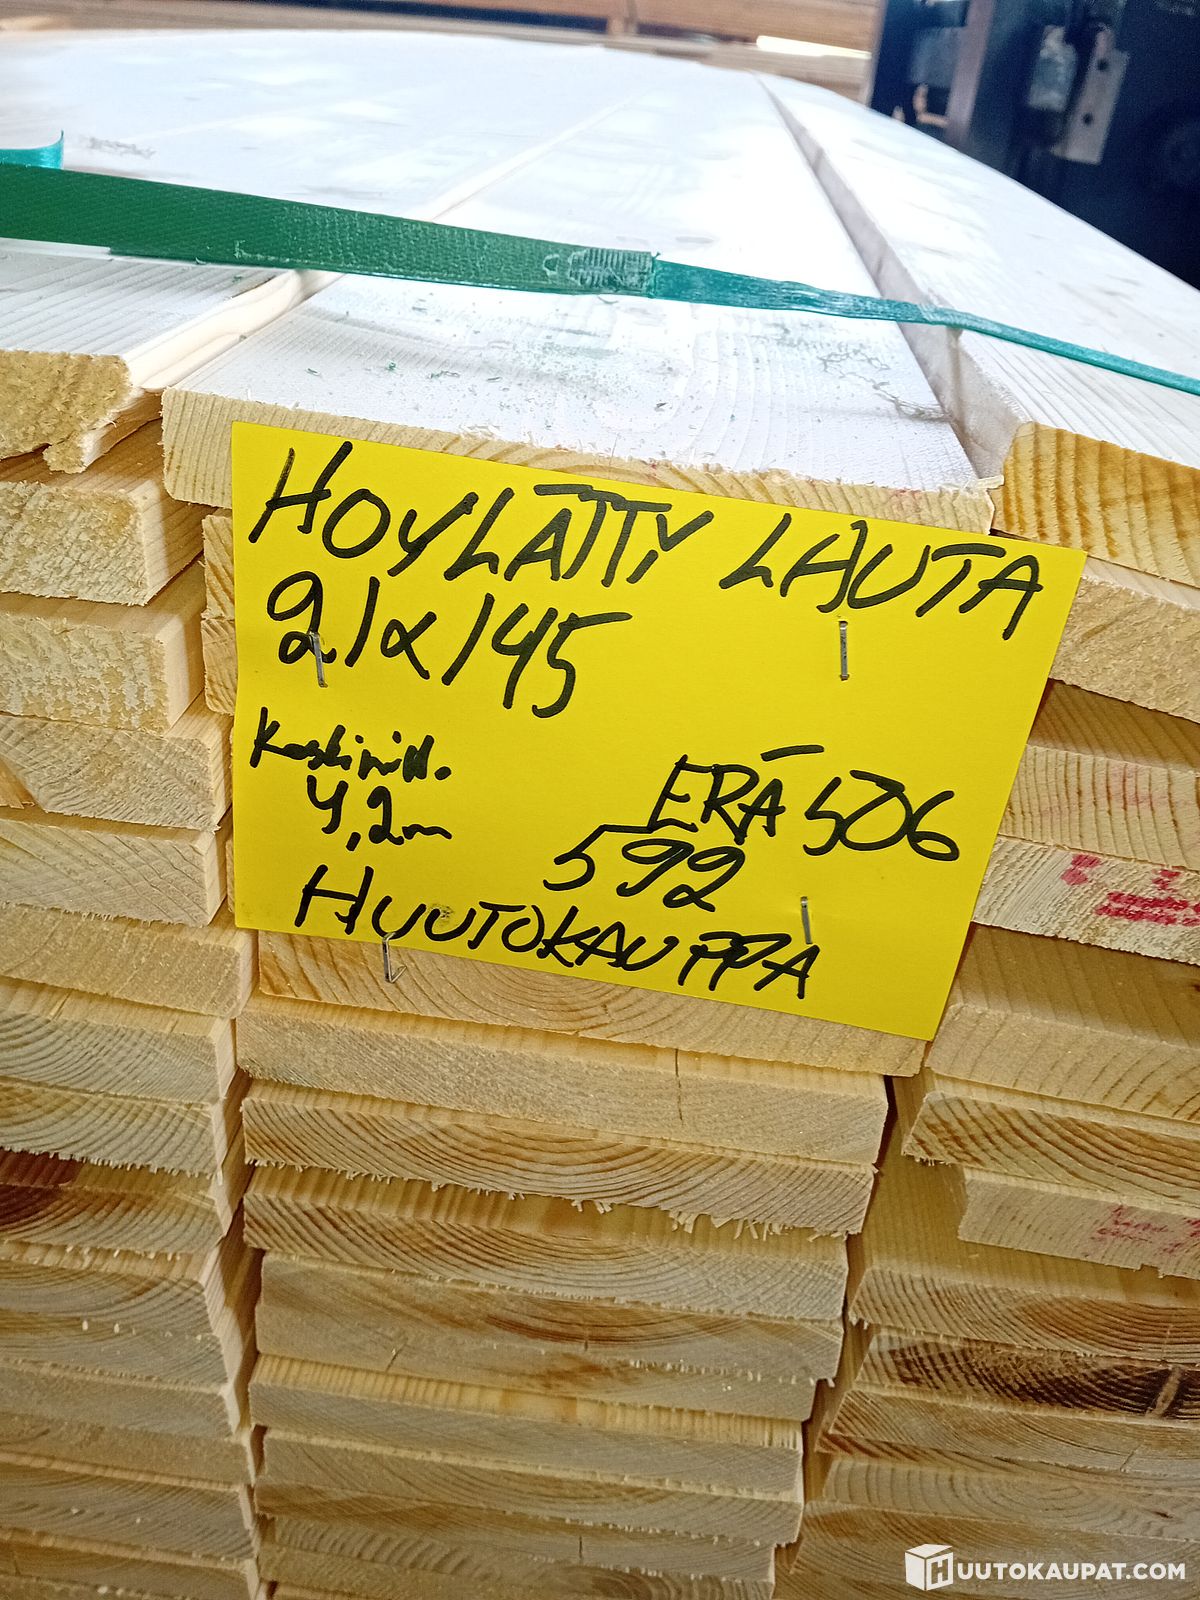 HÖYLÄTTY LAUTA
21x145
Keskimitt.
4,2m
ERÄ 506
592
HUUTOKAUPPA
HUUTOKAUPAT.COM